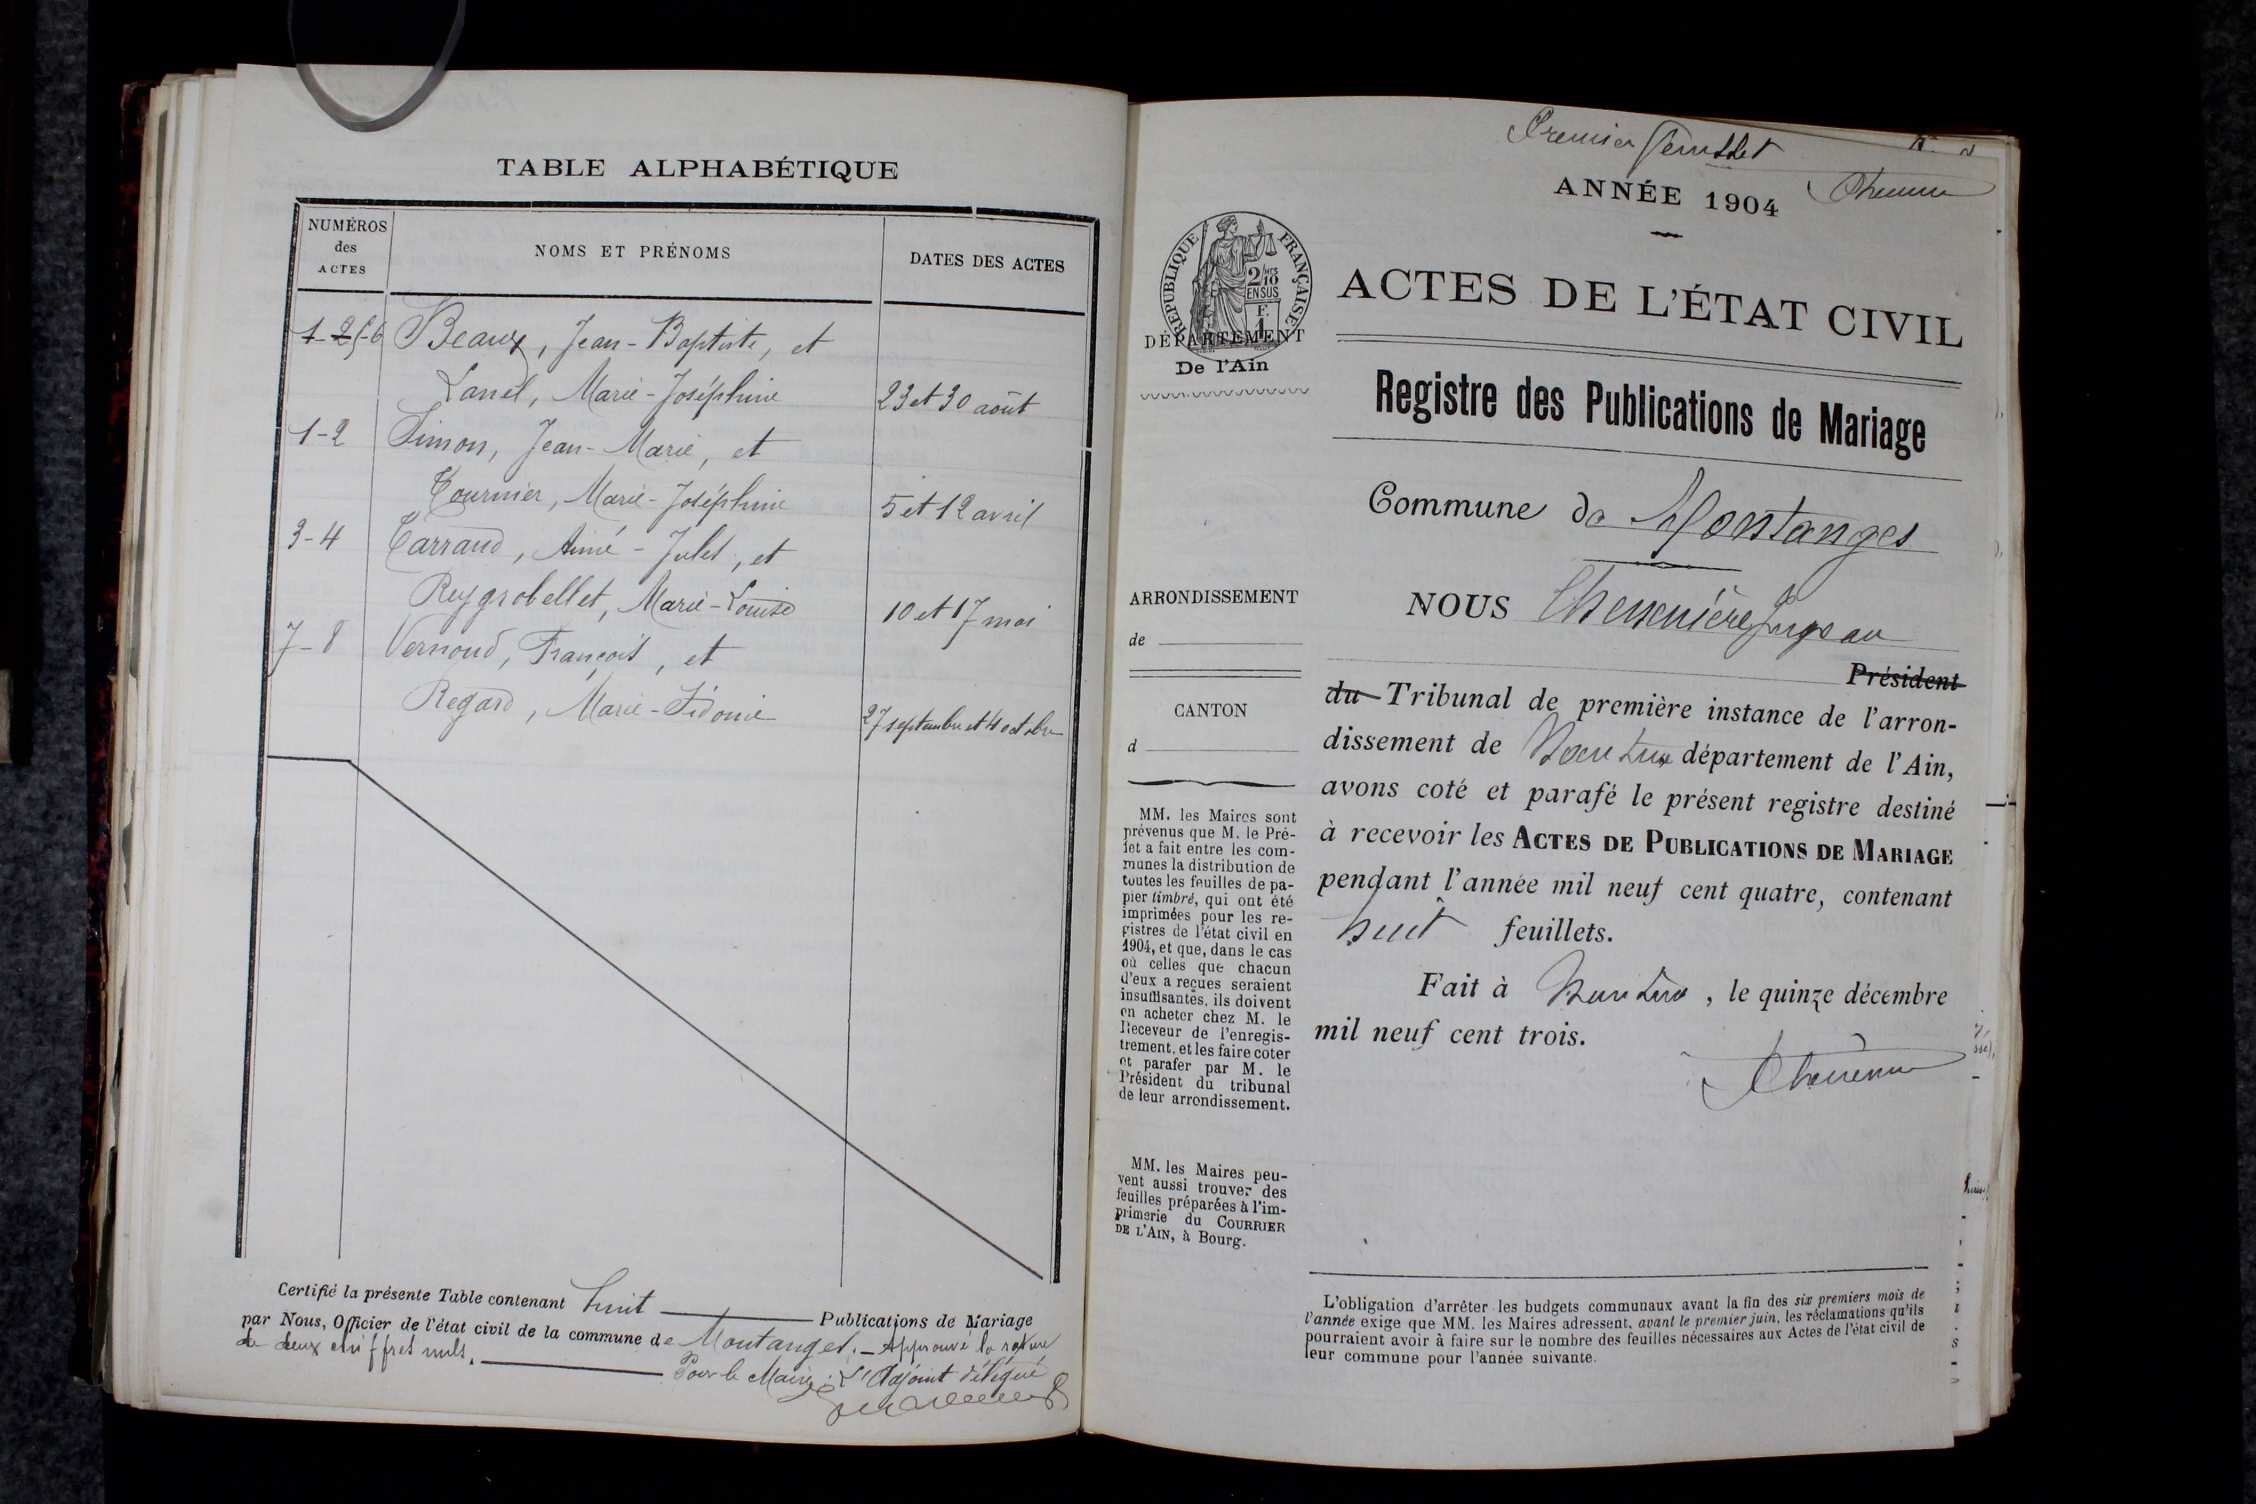 TABLE ALPHABÉTIQUE
NUMÉROS
des
ACTES
NOMS ET PRÉNOMS
DATES DES ACTES
1-2 5-6 Beaux, Jean-Baptiste, et
Lanel, Marie-Joséphine 23 et 30 août
1-2 Simon, Jean-Marie, et
Tournier, Marie-Joséphine 5 et 12 avril
3-4 Tarrand, Aimé-Jules, et
Reygrobellet, Marie-Louise 10 et 17 mai
7-8 Vernoud, François, et
Regard, Marie-Sidonie 27 septembre et 4 octobre
Certifié la présente Table contenant huit Publications de Mariage
par Nous, Officier de l'état civil de la commune de Montanges. - Approuvé la rature
de deux chiffres nuls.
Pour le Maire: L'Adjoint délégué
Premier feuillet
ANNÉE 1904
RÉPUBLIQUE FRANÇAISE
2/10
EN SUS
F.
1
DÉPARTEMENT
De l'Ain
ACTES DE L'ÉTAT CIVIL
Registre des Publications de Mariage
Commune de Montanges
ARRONDISSEMENT
de
CANTON
d
MM. les Maires sont
prévenus que M. le Pré-
fet a fait entre les com-
munes la distribution de
toutes les feuilles de pa-
pier timbré, qui ont été
imprimées pour les re-
gistres de l'état civil en
1904, et que, dans le cas
où celles que chacun
d'eux a reçues seraient
insuffisantes, ils doivent
en acheter chez M. le
Receveur de l'enregis-
trement, et les faire coter
et parafer par M. le
Président du tribunal
de leur arrondissement.
MM. les Maires peu-
vent aussi trouver des
feuilles préparées à l'im-
primerie du COURRIER
DE L'AIN, à Bourg.
NOUS juge au
Président
du Tribunal de première instance de l'arron-
dissement de Nantua département de l'Ain,
avons coté et parafé le présent registre destiné
à recevoir les ACTES DE PUBLICATIONS DE MARIAGE
pendant l'année mil neuf cent quatre, contenant
huit feuillets.
Fait à Nantua, le quinze décembre
mil neuf cent trois.
L'obligation d'arrêter les budgets communaux avant la fin des six premiers mois de
l'année exige que MM. les Maires adressent, avant le premier juin, les réclamations qu'ils
pourraient avoir à faire sur le nombre des feuilles nécessaires aux Actes de l'état civil de
leur commune pour l'année suivante.